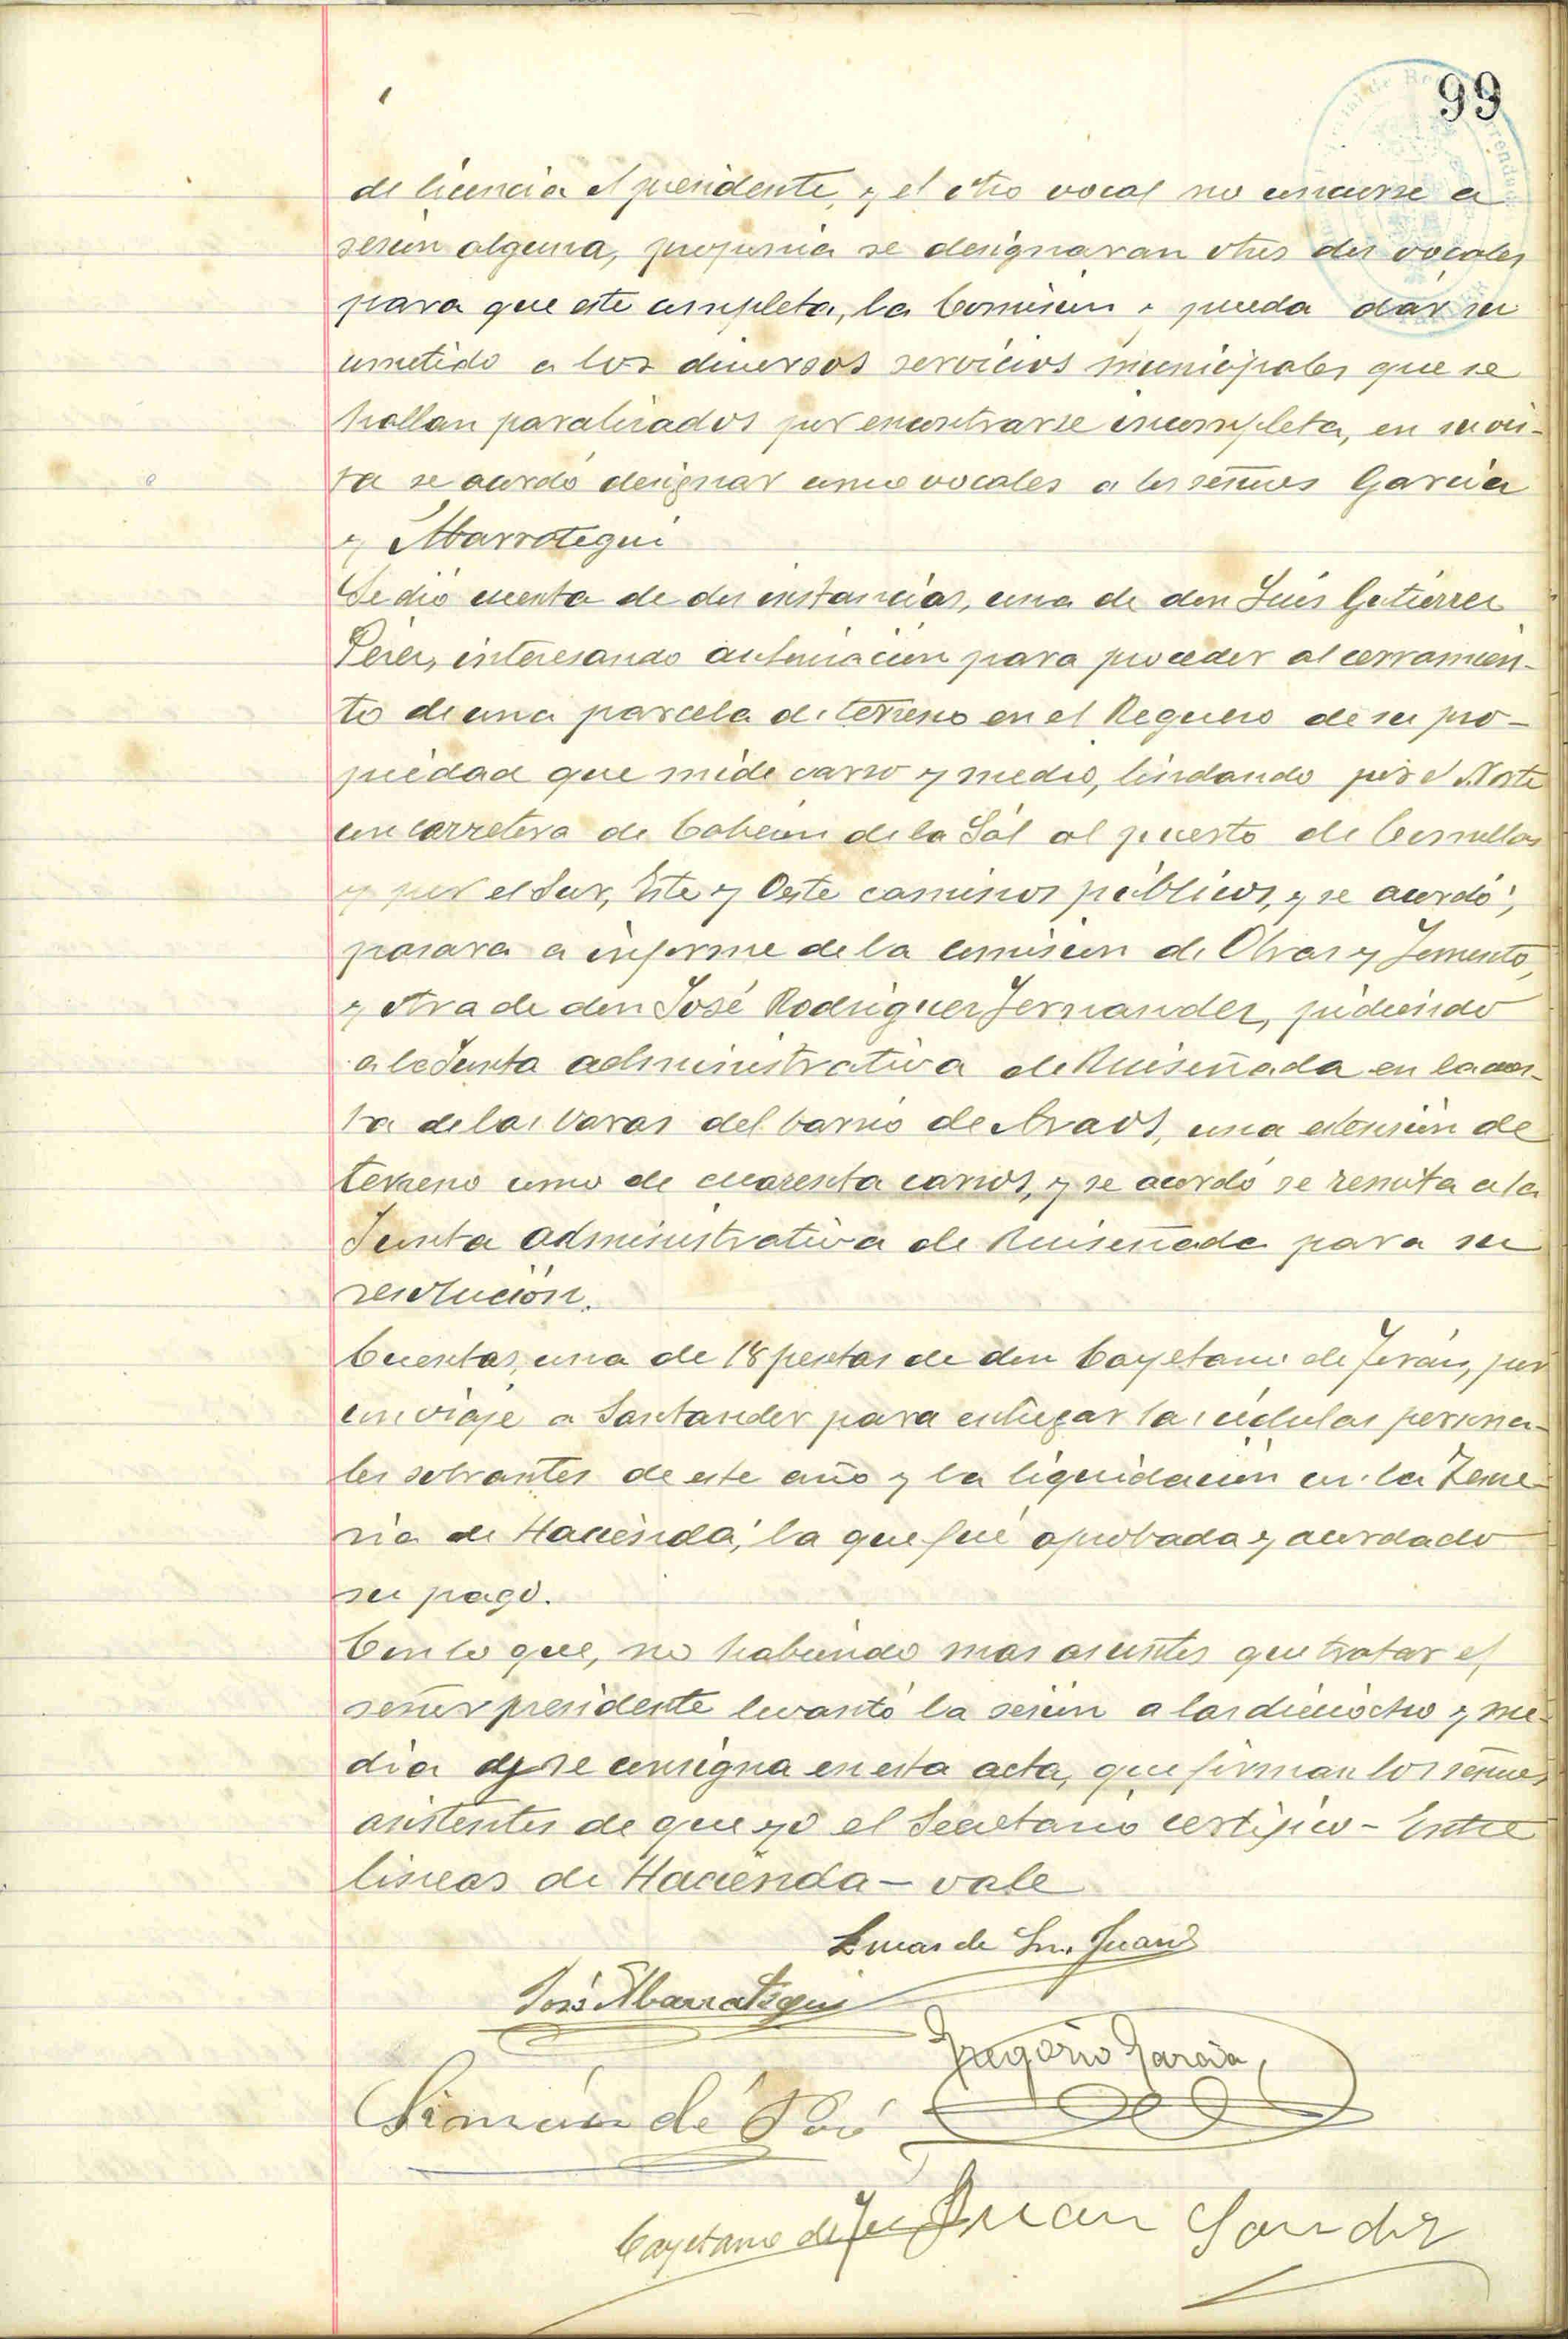 99
de licencia el presidente, y el otro vocal no concurre a
sesión alguna, proponia se designaran otros dos vocales
para que este completa, la Comision y pueda dar su
cometido a los diversos servicios municipales que se
hallan paralizados por encontrarse incompleta, en su vis-
ta se acordó designar como vocales a los señores Garcia
y Abarrategui
Se dió cuenta de dos instancias, una de don Luis Gutierrez
Perez, interesando autorizacion para proceder al cerramien-
to de una parcela de terreno en el Reguero de su pro-
piedad que mide carro y medio, lindando por el Norte
con carretera de Cabezon de la Sal al puerto de Comillas
y por el Sur, Este y Oeste caminos públicos, y se acordó,
pasara a informe de la comision de Obras y Fomento,
y otra de don José Rodriguez Fernandez, pidiendo
a la Junta administrativa de Ruiseñada en la
de las Varas del barrio de Araos, una extension de
terreno como de cuarenta carros, y se acordó se remita a la
Junta administrativa de Ruiseñada para su
resolución.
Cuentas, una de 18 pesetas de don Cayetano de Terán, por
un viaje a Santander para entregar las cédulas persona-
les sobrantes de este año y la liquidación en la Tesore-
ria de Hacienda, la que fué aprobada y acordado
su pago.
Con lo que, no habiendo mas asuntos que tratar el
señor presidente levantó la sesión a las dieciocho y me-
dia y se consigna en esta acta, que firman los señores
asistentes de que yo el Secretario certifico - Entre
lineas de Hacienda - vale
Lucas de Sn. Juan
José Abarrategui
Gregorio Garcia
Simón de Poó
Cayetano de Juan Sandez